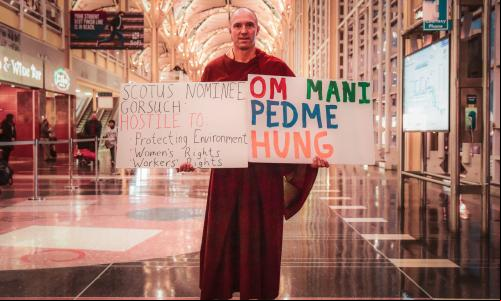 SCOTUS NOMINEE
GORSUCH
HOSTILE TO
Protecting Environment
Women's Rights
Workers' Rights
OM MANI
PEDME
HUNG